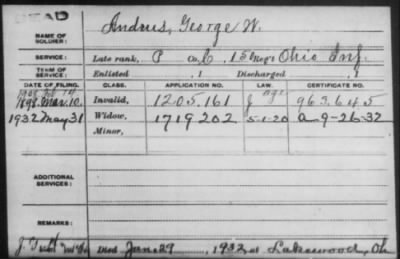 DEAD
NAME OF SOLDIER: Andrus, George W.
SERVICE: Late rank, P Co. C, 15 Reg't Ohio Inf.
TERM OF SERVICE: Enlisted , 1 Discharged , 1
DATE OF FILING. CLASS. APPLICATION NO. LAW. CERTIFICATE NO.
1898 Mar. 10. Invalid, 1205.161 963.645
1932 May 31 Widow, 1719202 5-1-20 a 9-26-32
Minor,
ADDITIONAL SERVICES:
REMARKS:
Died Jan. 29, 1932, at Lakewood, Oh